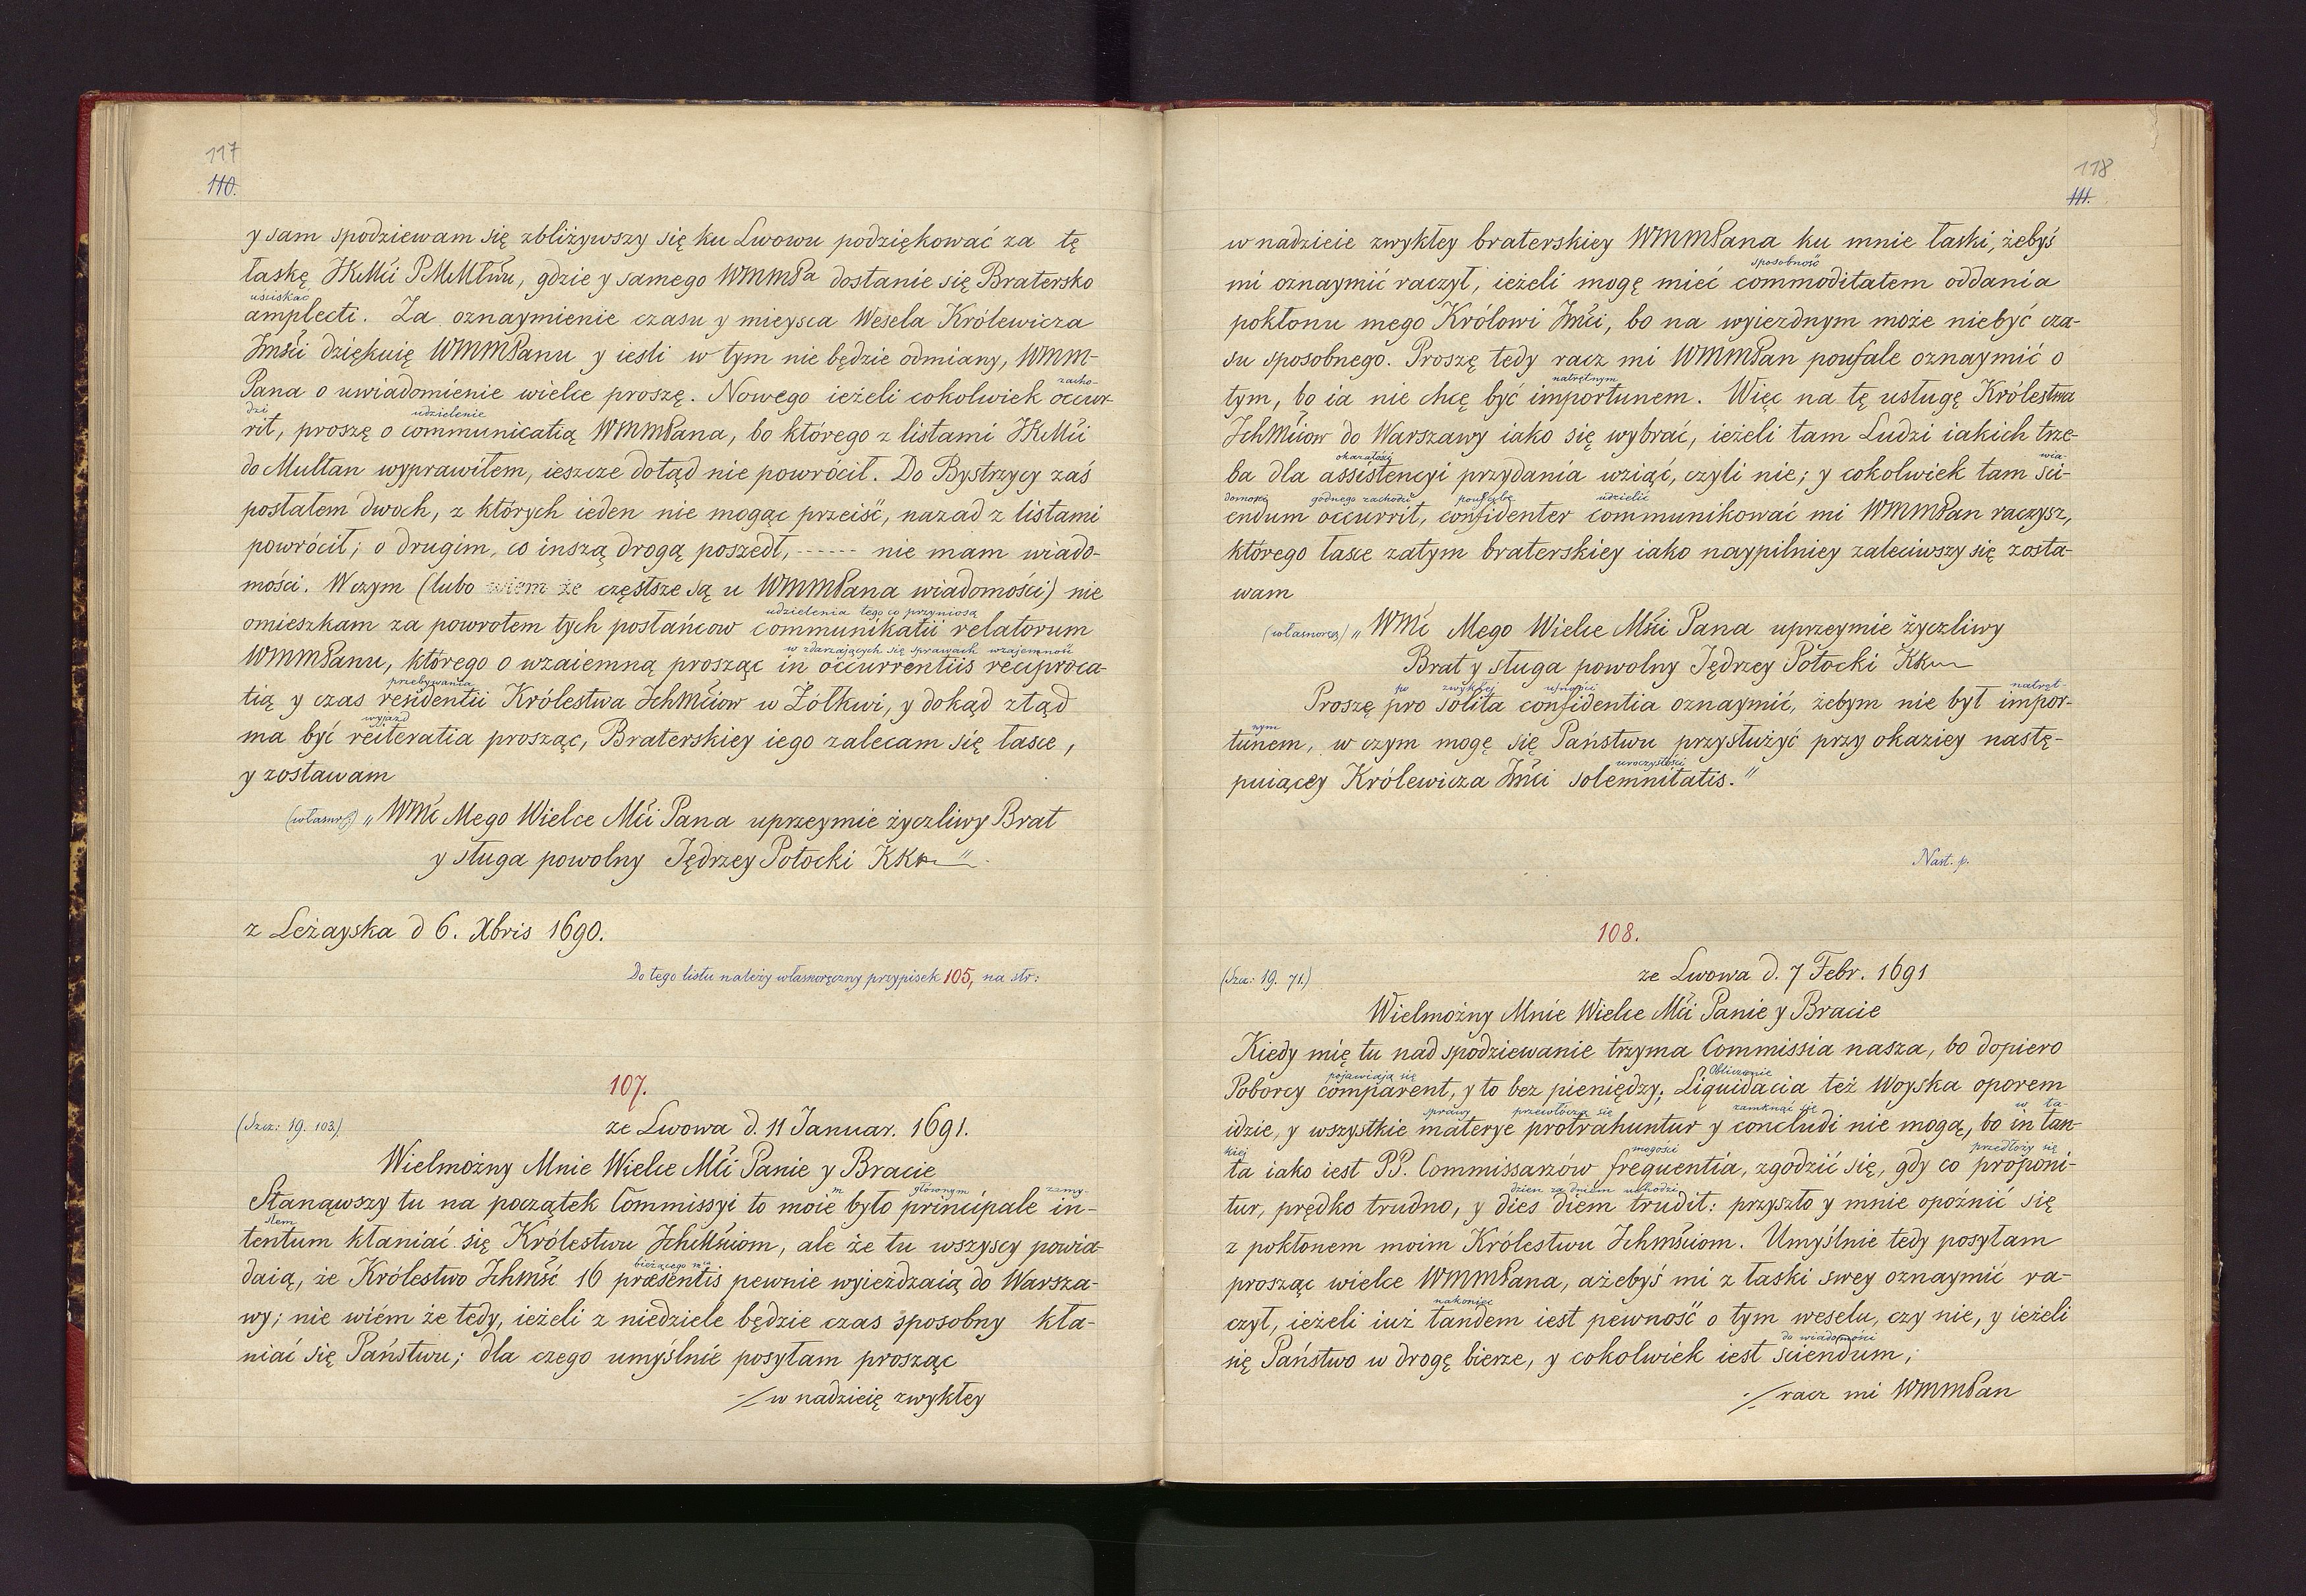 117
110.
y sam spodziewam się zbliżywszy się ku Lwowu podziękować za tę
łaskę JKMći PMMłwu, gdzie y samego WMMPa dostanie się Bratersko
uściskać
amplecti. Za oznaymienie czasu y mieysca Wesela Królewicza
Jmści dziękuię WMMPanu y iesli w tym nie będzie odmiany, WMM-
Pana o uwiadomienie wielce proszę. Nowego ieżeli cokolwiek occur-
zacho-
dzi udzielenie
rit, proszę o communicatią WMMPana, bo którego z listami JKMći
do Multan wyprawiłem, ieszcze dotąd nie powrócił. Do Bystrzycy zaś
posłałem dwoch, z których ieden nie mogąc przeiść, nazad z listami
powrócił; o drugim, co inszą drogą poszedł, ------ nie mam wiado-
mości. W czym (lubo wiem że częstsze są u WMMPana wiadomości) nie
udzielenia tego co przyniosą
omieszkam za powrotem tych posłańcow communikatii relatorum
w zdarzających się sprawach wzajemność
WMMPanu, którego o wzaiemną prosząc in occurrentiis reciproca-
przebywania
tią y czas residentii Królestwa Ichmćiow w Żółkwi, y dokąd ztąd
wyjazd
ma być reiteratia prosząc, Braterskiey iego zalecam się łasce,
y zostawam
(własnrę.) „WMć Mego Wielce Mći Pana uprzeymie życzliwy Brat
y sługa powolny Jędrzey Potocki KKr"
z Leżayska d 6. Xbris 1690.
Do tego listu należy własnoręczny przypisek 105, na str:
107.
(Szcz: 19. 103.)
ze Lwowa d. 11 Januar. 1691.
Wielmożny Mnie Wielce Mći Panie y Bracie
m głównym zamy-
Stanąwszy tu na początek Commissyi to moie było principale in-
słem
tentum kłaniać się Królestwu Ichmściom, ale że tu wszyscy powia-
bieżącego m-ca
daią, że Królestwo Ichmść 16 præsentis pewnie wyieżdzaią do Warsza-
wy; nie wiém że tedy, ieżeli z niedziele będzie czas sposobny kła-
niać się Państwu; dla czego umyślnie posyłam prosząc
·/. w nadzieię zwykłey
118
111.
w nadzieie zwykłey braterskiey WMMPana ku mnie łaski, żebyś
sposobność
mi oznaymić raczył, ieżeli mogę mieć commoditatem oddania
pokłonu mego Królowi Jmći, bo na wyiezdnym może niebyć cza-
su sposobnego. Proszę tedy racz mi WMMPan poufale oznaymić o
natrętnym
tym, bo ia nie chcę być importunem. Więc na tę usługę Królestwa
Ichmćiow do Warszawy iako się wybrać, ieżeli tam Ludzi iakich trze-
okazałości wia-
ba dla assistencyi przydania wziąć, czyli nie; y cokolwiek tam sci-
domości godnego zachodzi poufale udzielić
endum occurrit, confidenter communikować mi WMMPan raczysz,
którego łasce zatym braterskiey iako naypilniey zaleciwszy się zosta-
wam
(własnoręcz) „WMć Mego Wielce Mści Pana uprzeymie życzliwy
Brat y sługa powolny Jędrzey Potocki KK
po zwykłej ufności natręt-
Proszę pro solita confidentia oznaymić, żebym nie był impor-
nym
tunem, w czym mogę się Państwu przysłużyć przy okaziey nastę-
uroczystości
puiącey Królewicza Jmći solemnitatis."
Nast. p.
108.
(Szcz: 19. 71.)
ze Lwowa d. 7 Febr. 1691
Wielmożny Mnie Wielce Mći Panie y Bracie
Kiedy mię tu nad spodziewanie trzyma Commissia nasza, bo dopiero
pojawiają się Obliczenie
Poborcy comparent, y to bez pieniędzy; Liquidacia też Woyska oporem
sprawy przewłóczą się zamknąć się w ta-
idzie, y wszystkie materye protrahuntur y concludi nie mogą, bo in tan-
kiej mnogości przedłoży się
ta iako iest PP. Commissarzów frequentia, zgodzić się, gdy co proponi-
dzien za dniem uchodzi
tur, prędko trudno, y dies diem trudit: przyszło y mnie opoźnić się
z pokłonem moim Królestwu Ichmściom. Umyślnie tedy posyłam
prosząc wielce WMMPana, ażebyś mi z łaski swey oznaymić ra-
nakoniec
czył, ieżeli iuż tandem iest pewność o tym weselu, czy nie, y ieżeli
do wiadomości
się Państwo w drogę bierze, y cokolwiek iest sciendum,
·/. racz mi WMMPan